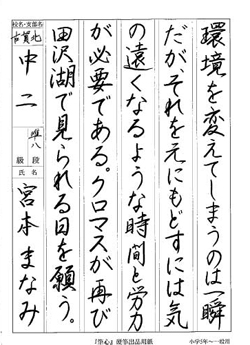 環境を変えてしまうのは一瞬
だがそれを元にもどすには気
の遠くなるような時間と労力
が必要である。クロマスが再び
田沢湖で見られる日を願う。
校名・支部名
古賀北
中二
準八
段
級
氏名
宮本まなみ
『筆心』硬筆出品用紙
小学5年〜一般用